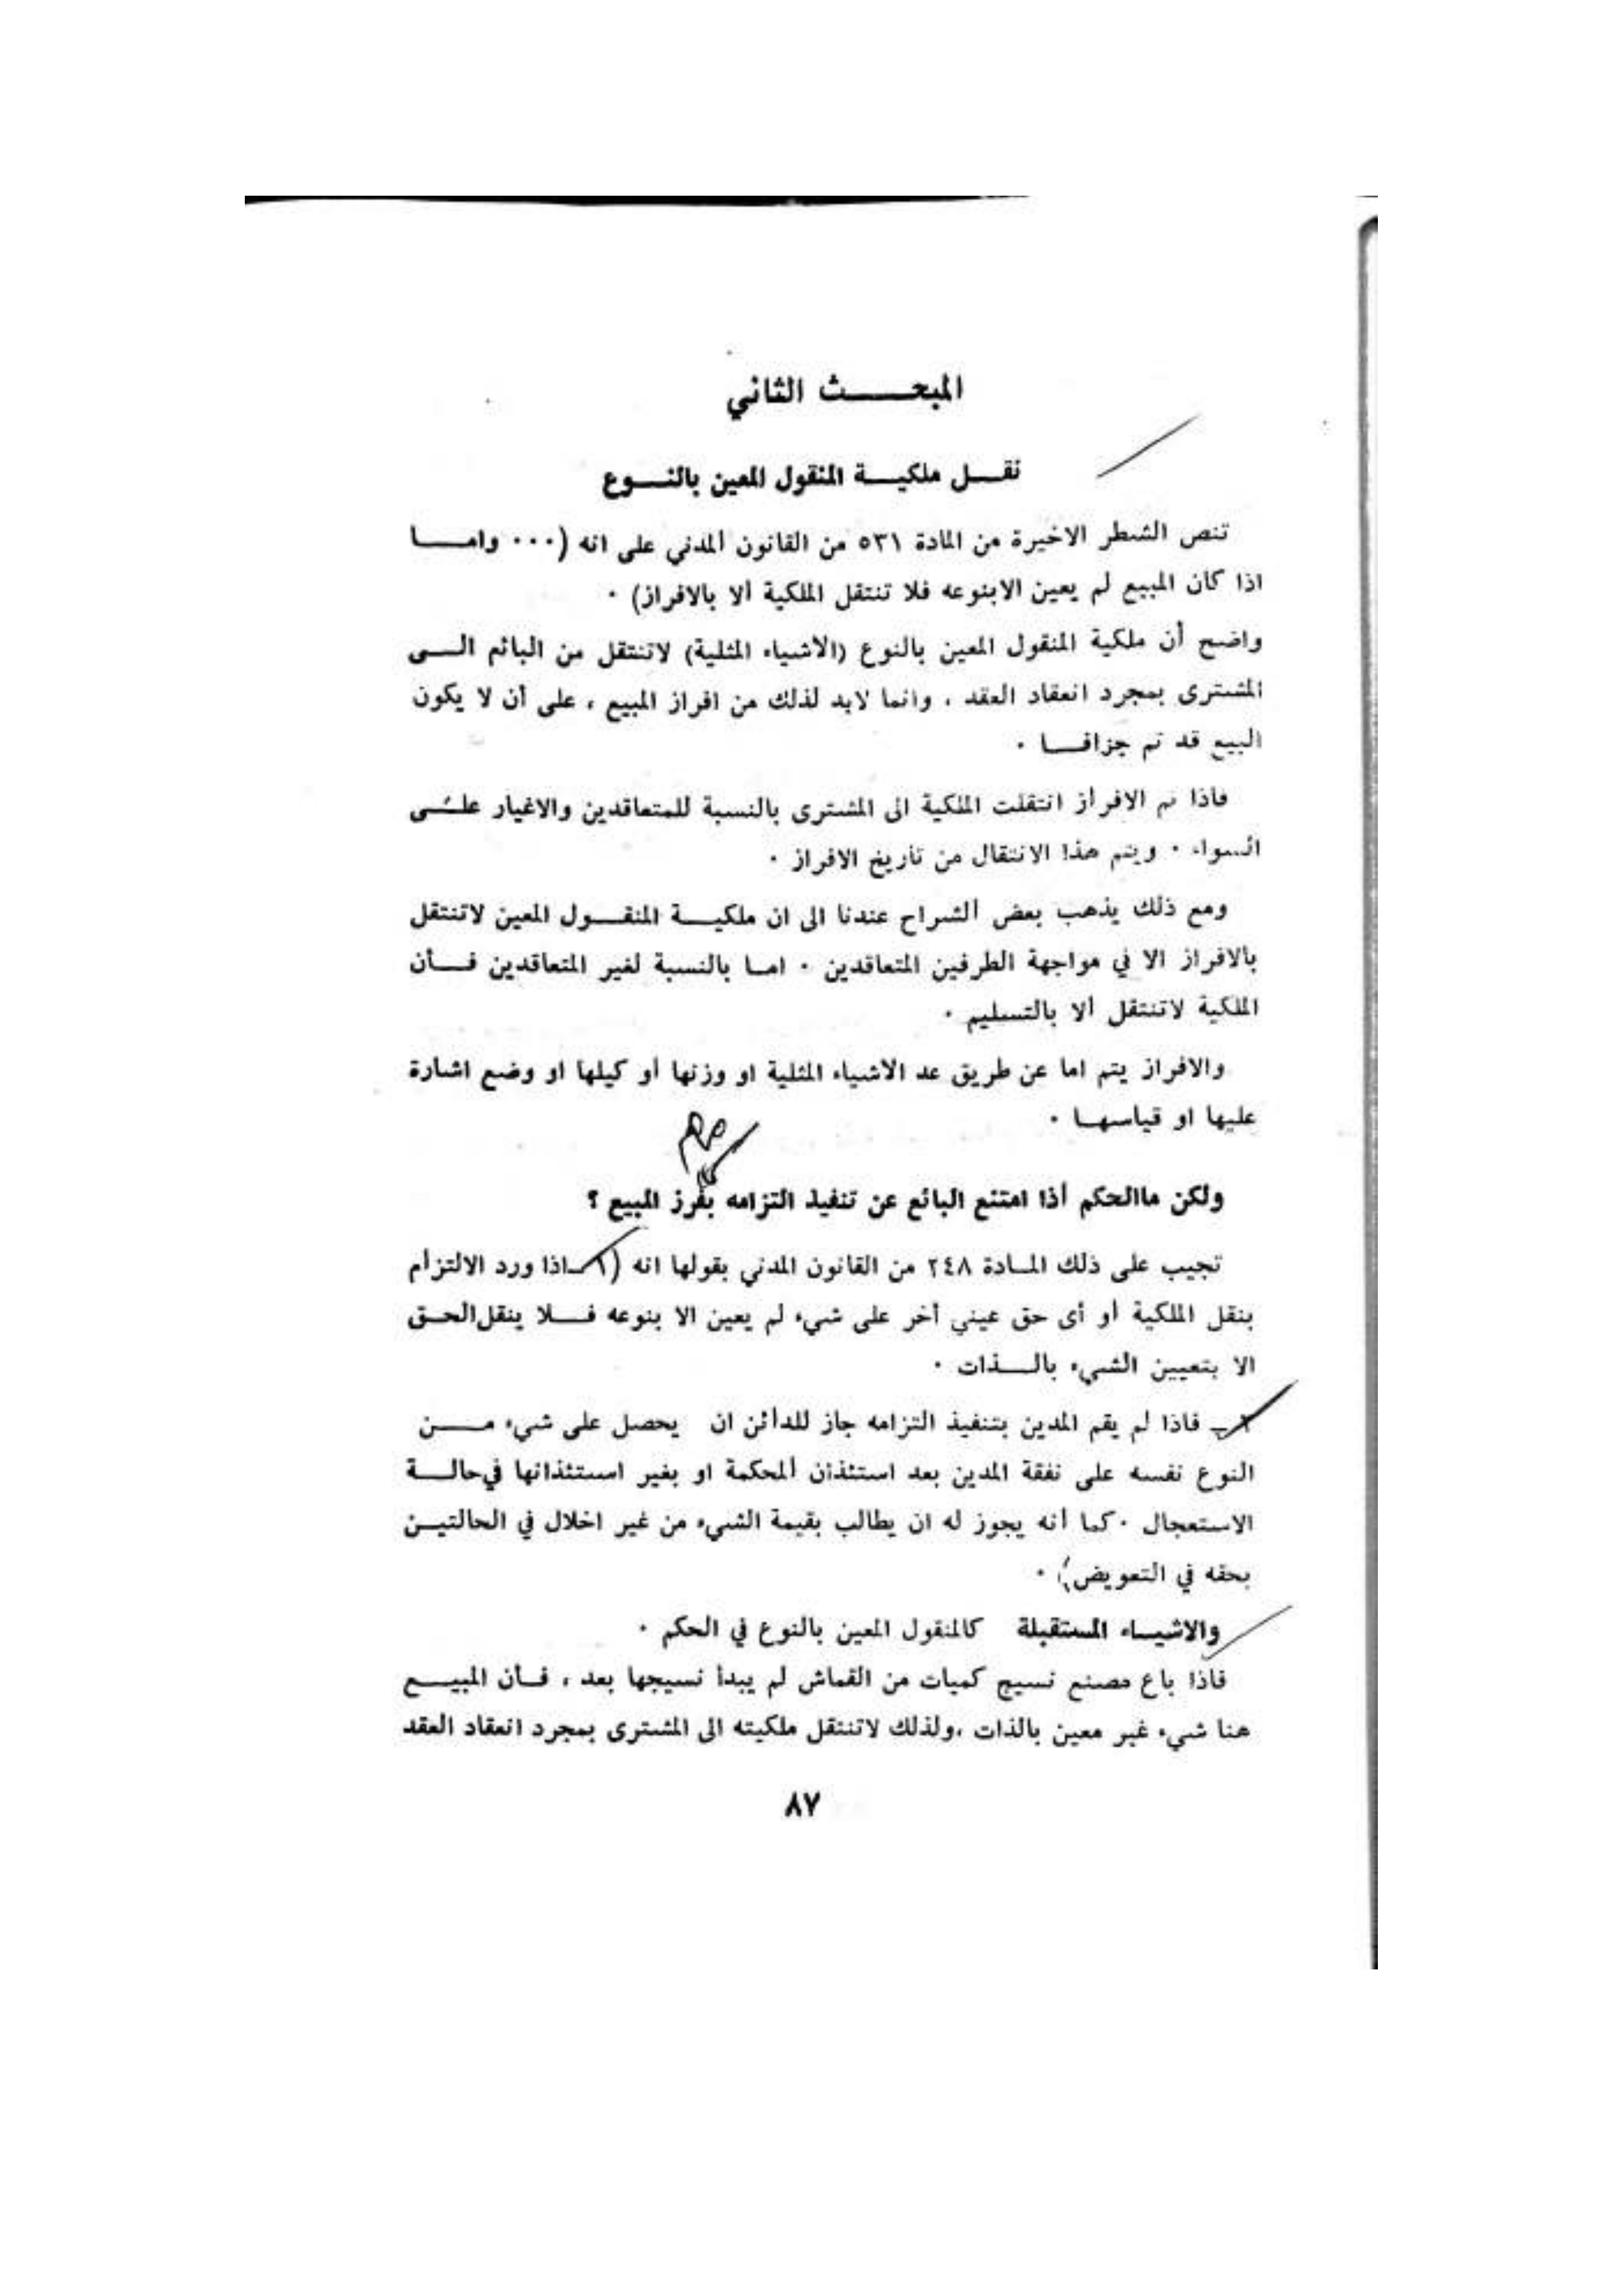 المبحـــــث الثاني
نقـــل ملكيـــة المنقول المعين بالنـــوع
تنص الشطر الاخيرة من المادة ٥٣١ من القانون المدني على انه (٠٠٠ وامـــا
اذا كان المبيع لم يعين الابنوعه فلا تنتقل الملكية ألا بالافراز) ٠
واضح أن ملكية المنقول المعين بالنوع (الاشياء المثلية) لاتنتقل من البائع الـــى
المشترى بمجرد انعقاد العقد ، وانما لابد لذلك من افراز المبيع ، على أن لا يكون
البيع قد تم جزافـــا ٠
فاذا تم الافراز انتقلت الملكية الى المشترى بالنسبة للمتعاقدين والاغيار علـــى
السواء ٠ ويتم هذا الانتقال من تاريخ الافراز ٠
ومع ذلك يذهب بعض الشراح عندنا الى ان ملكيـــة المنقـــول المعين لاتنتقل
بالافراز الا في مواجهة الطرفين المتعاقدين ٠ امـا بالنسبة لغير المتعاقدين فـــأن
الملكية لاتنتقل ألا بالتسليم ٠
والافراز يتم اما عن طريق عد الاشياء المثلية او وزنها أو كيلها او وضع اشارة
عليها او قياسهـــا ٠
مهم
ولكن ماالحكم أذا امتنع البائع عن تنفيذ التزامه بفرز المبيع ؟
تجيب على ذلك المـادة ٢٤٨ من القانون المدني بقولها انه (١ـ اذا ورد الالتزام
بنقل الملكية أو أى حق عيني أخر على شيء لم يعين الا بنوعه فـــلا ينقل الحـق
الا بتعيين الشيء بالـــذات ٠
٢ـ فاذا لم يقم المدين بتنفيذ التزامه جاز للدائن ان يحصل على شيء مـــن
النوع نفسه على نفقة المدين بعد استئذان المحكمة او بغير استئذانها في حالـــة
الاستعجال ٠ كما أنه يجوز له ان يطالب بقيمة الشيء من غير اخلال في الحالتيـن
بحقه في التعويض) ٠
والاشيـــاء المستقبلة كالمنقول المعين بالنوع في الحكم ٠
فاذا باع مصنع نسيج كميات من القماش لم يبدأ نسيجها بعد ، فـأن المبيـــع
هنا شيء غير معين بالذات ،ولذلك لاتنتقل ملكيته الى المشترى بمجرد انعقاد العقد
٨٧